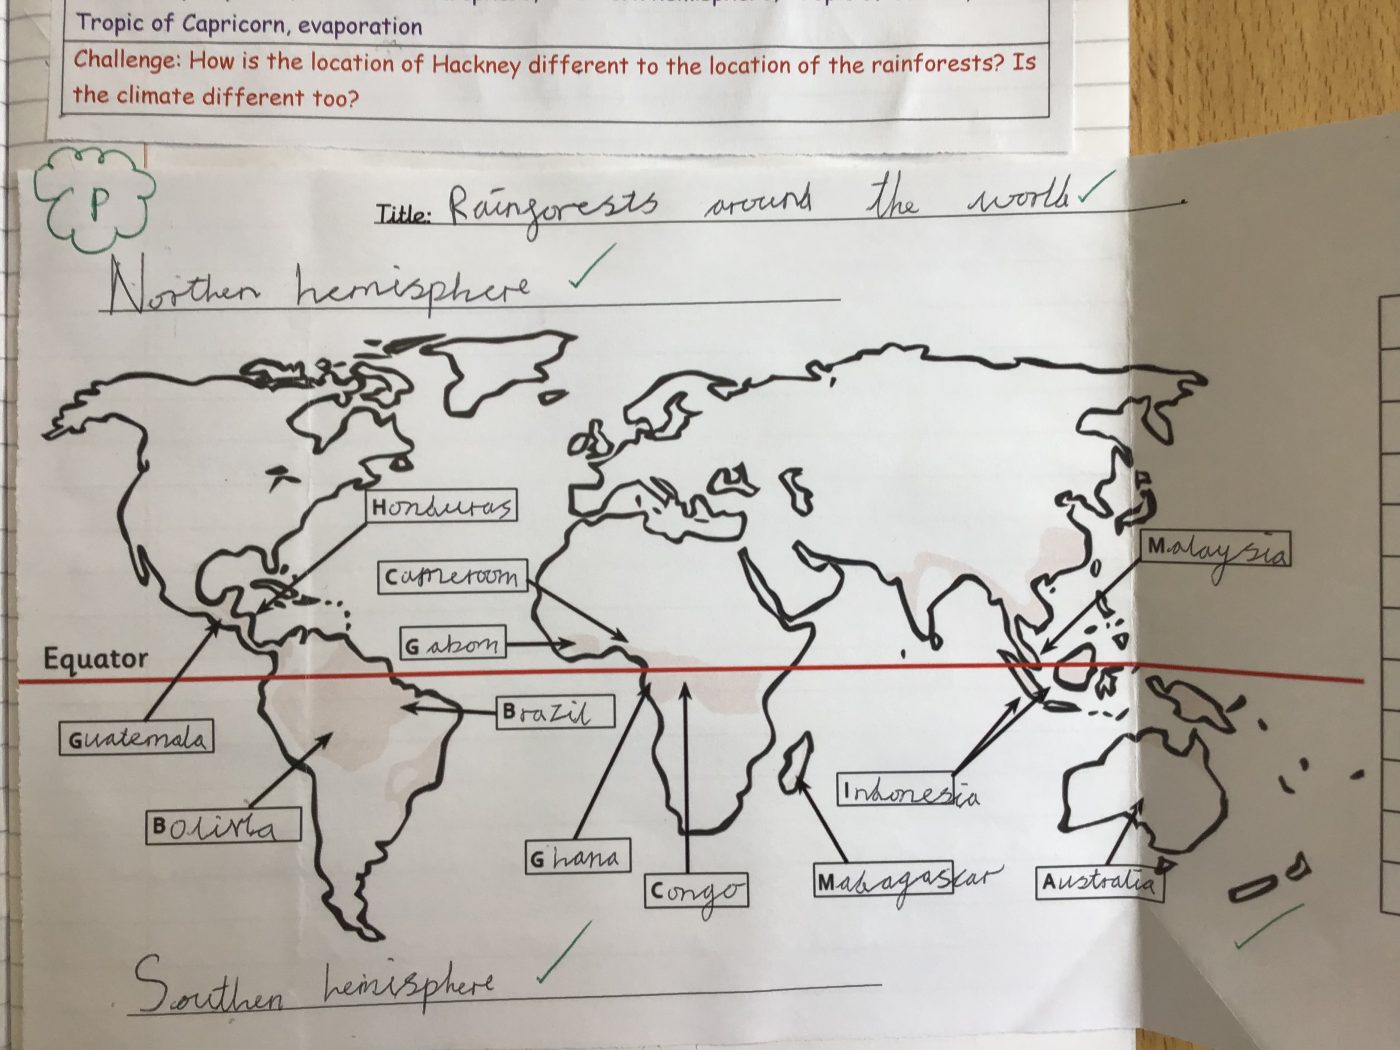 Tropic of Capricorn, evaporation
Challenge: How is the location of Hackney different to the location of the rainforests? Is
the climate different too?
P
Title: Rainforests around the world
Northen hemisphere
Honduras
Malaysia
Cameroom
Gabom
Equator
Brazil
Guatemala
Indonesia
Bolivia
Ghana
Congo
Madagaskar
Australia
Southen hemisphere